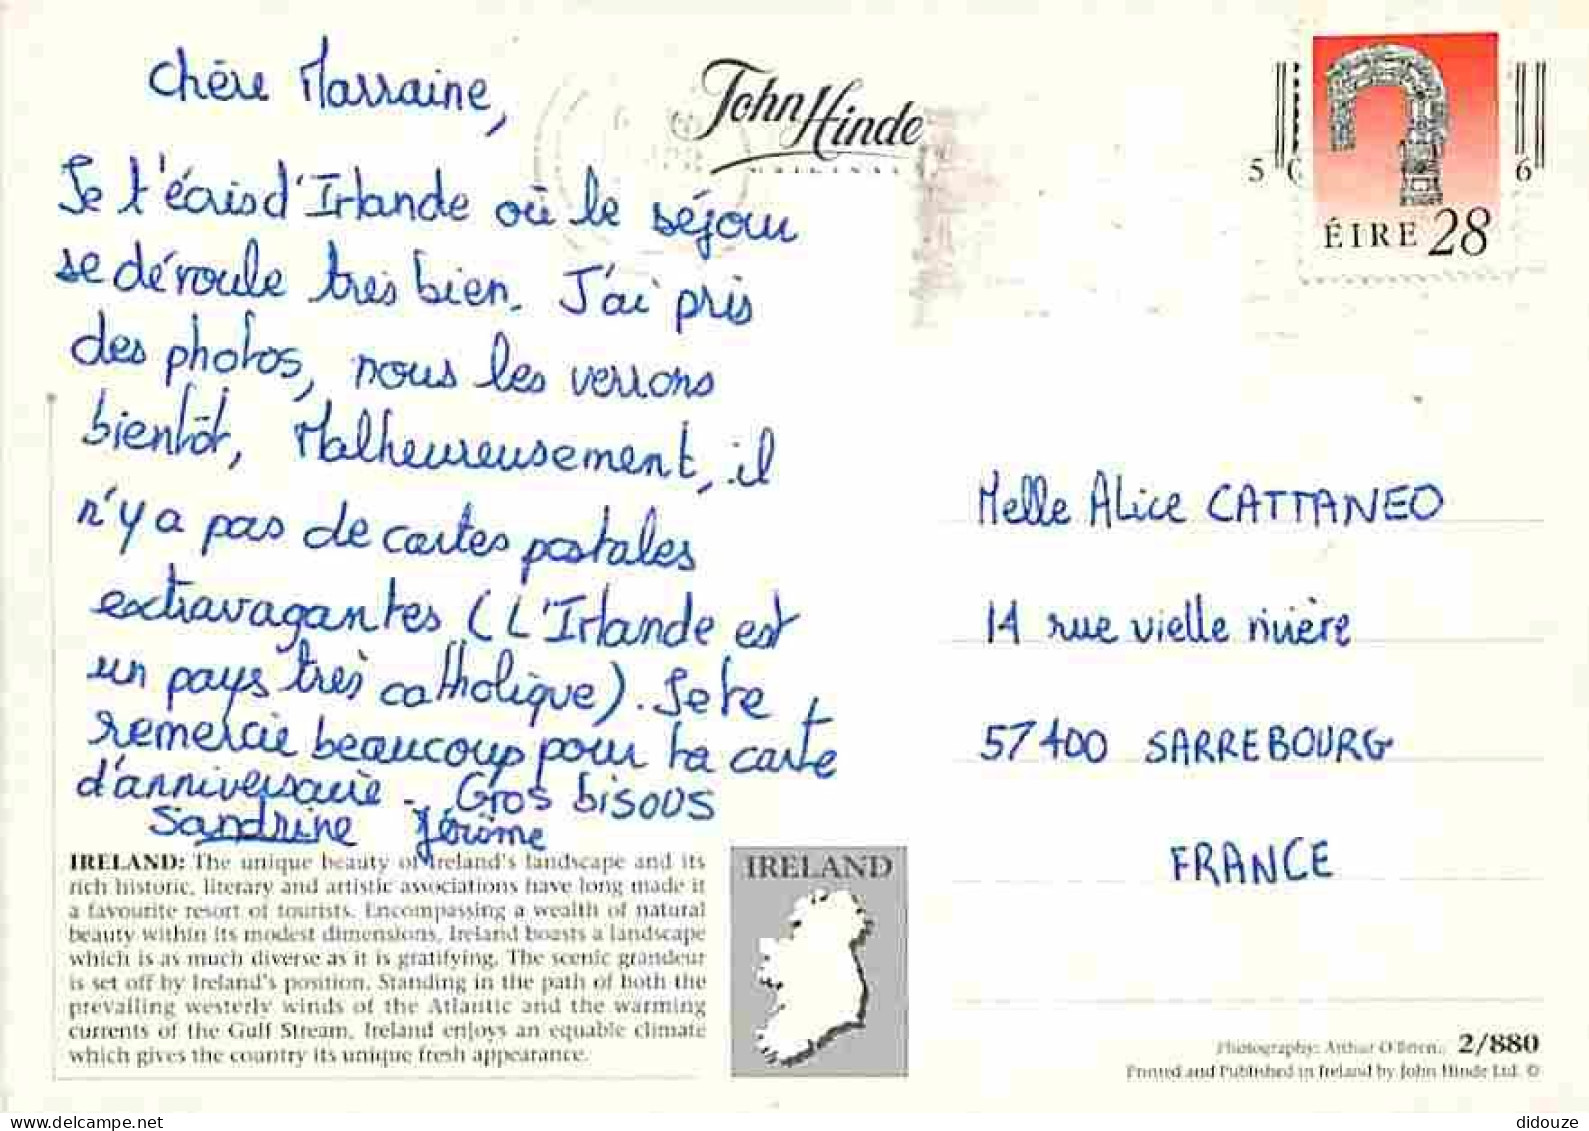 Chère Marraine,
John Hinde
ORIGINAL
5
6
ÉIRE 28
Je t'écris d'Irlande où le séjour
se déroule très bien. J'ai pris
des photos, nous les verrons
bientôt, Malheureusement, il
n'y a pas de cartes postales
extravagantes (L'Irlande est
un pays très catholique). Je te
remercie beaucoup pour ta carte
d'anniversaire. Gros bisous
Sandrine Jérôme
Melle Alice CATTANEO
14 rue vielle rivière
57400 SARREBOURG
FRANCE
IRELAND: The unique beauty of Ireland's landscape and its
rich historic, literary and artistic associations have long made it
a favourite resort of tourists. Encompassing a wealth of natural
beauty within its modest dimensions, Ireland boasts a landscape
which is as much diverse as it is gratifying. The scenic grandeur
is set off by Ireland's position. Standing in the path of both the
prevailing westerly winds of the Atlantic and the warming
currents of the Gulf Stream, Ireland enjoys an equable climate
which gives the country its unique fresh appearance.
IRELAND
Photography: Arthur O'Brien. 2/880
Printed and Published in Ireland by John Hinde Ltd. ©
didouze